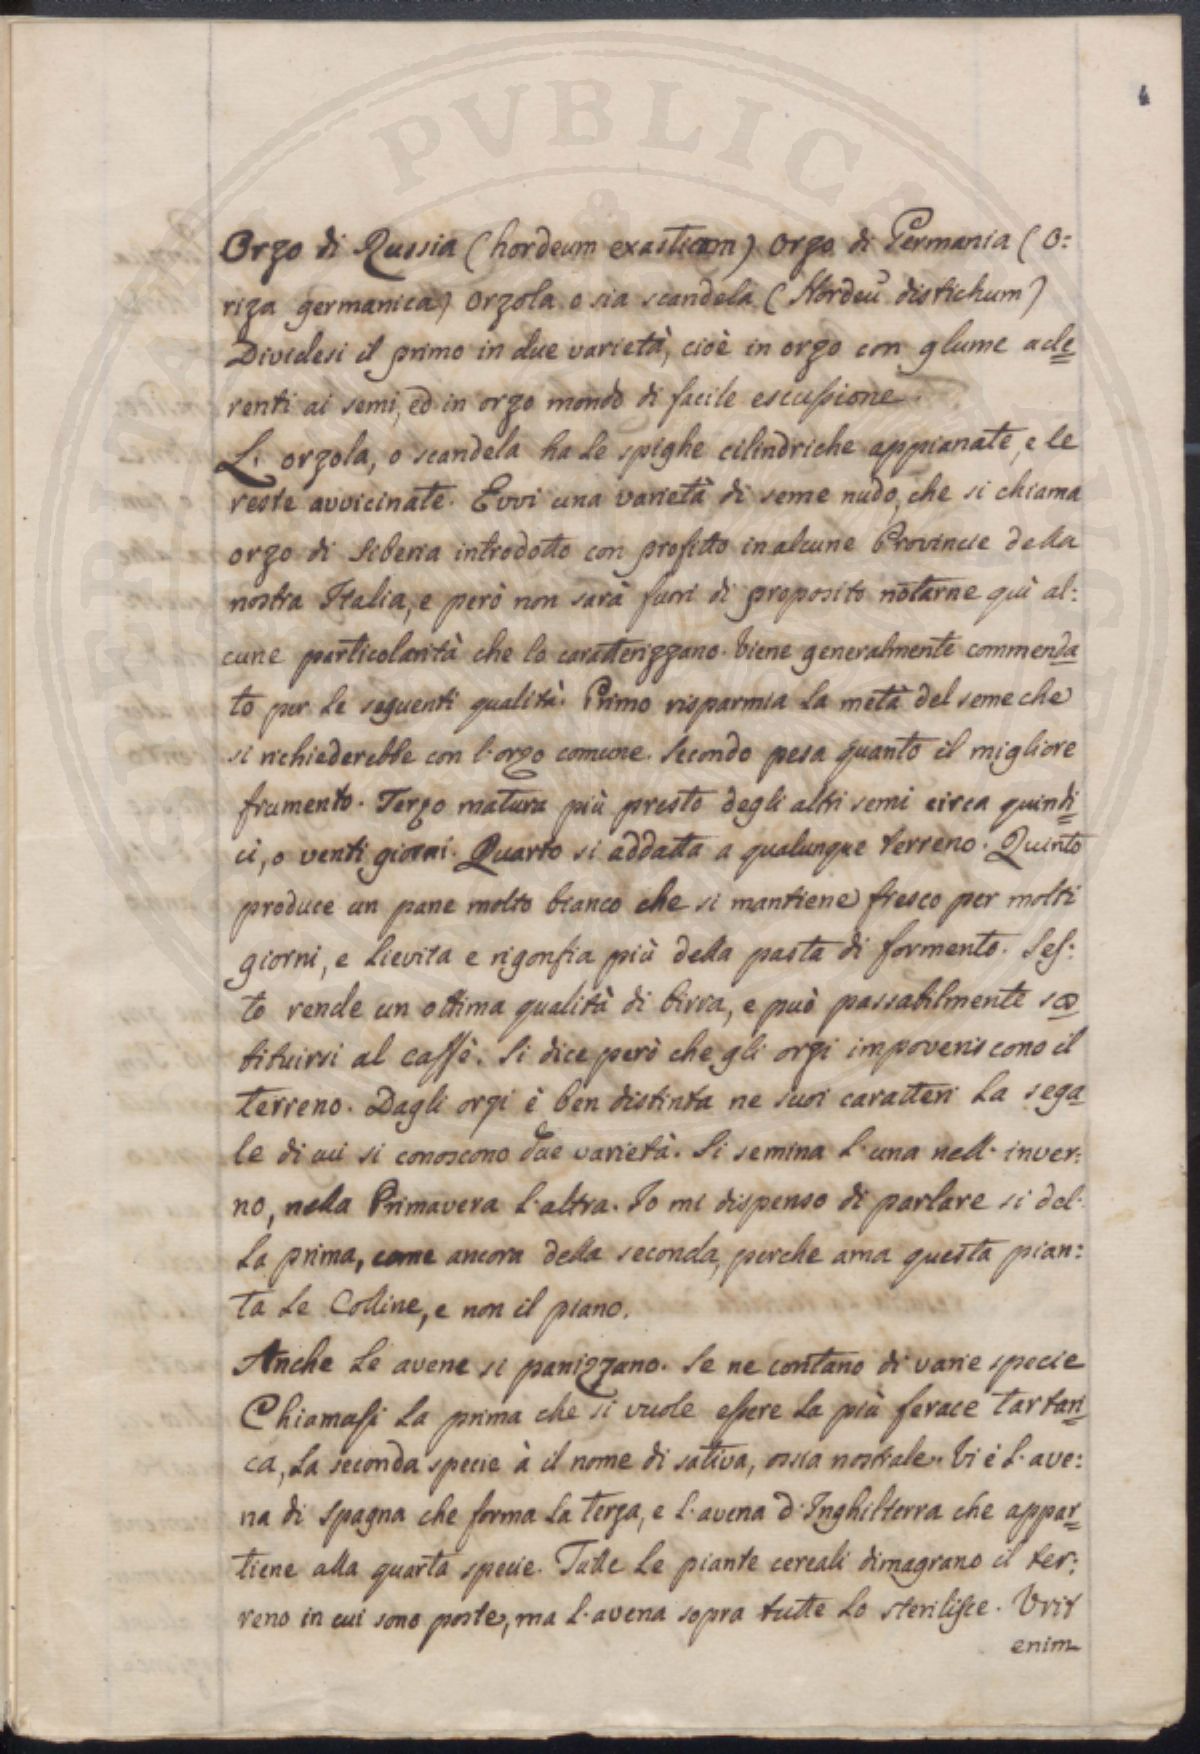 4
Orzo di Russia (hordeum exasticom) orzo di Germania (o:
riza germanica) orzola o sia scandela (Hordeū distichum)
Dividesi il primo in due varietà, cioè in orzo con glume ade=
renti ai semi, ed in orzo mondo di facile escussione.
L. orzola, o scandela ha le spighe cilindriche appianate, e le
reste avvicinate. Evvi una varietà di seme nudo, che si chiama
orzo di Siberia introdotto con profitto in alcune Provincie della
nostra Italia, e però non sarà fuori di proposito notarne quì al:
cune particolarità che lo caratterizzano. Viene generalmente commenda
to per le seguenti qualità. Primo risparmia la metà del seme che
si richiederebbe con l'orzo comune. Secondo pesa quanto il migliore
frumento. Terzo matura più presto degli altri semi circa quindi=
ci, o venti giorni. Quarto si addatta a qualunque terreno. Quinto
produce un pane molto bianco che si mantiene fresco per molti
giorni, e lievita e rigonfia più della pasta di formento. Ses:
to rende un ottima qualità di birra, e può passabilmente sos
tituirsi al caffè. Si dice però che gli orzi impoveriscono il
terreno. Dagli orzi è ben distinta ne suoi caratteri la sega
le di cui si conoscono due varietà. Si semina l'una nell' inver:
no, nella Primavera l'altra. Io mi dispenso di parlare si del
la prima, come ancora della seconda, perche ama questa pian:
ta le Colline, e non il piano.
Anche le avene si panizzano. Se ne contano di varie specie
Chiamasi la prima che si vuole essere la più ferace tartari
ca, la seconda specie à il nome di sativa, ossia nostrale. Vi è l'ave:
na di Spagna che forma la terza, e l'avena d'Inghilterra che appar=
tiene alla quarta specie. Tutte le piante cereali dimagrano il ter:
reno in cui sono poste, ma l'avena sopra tutte lo sterilisce. Vrit
enim
SVPRITANI PVBLICA